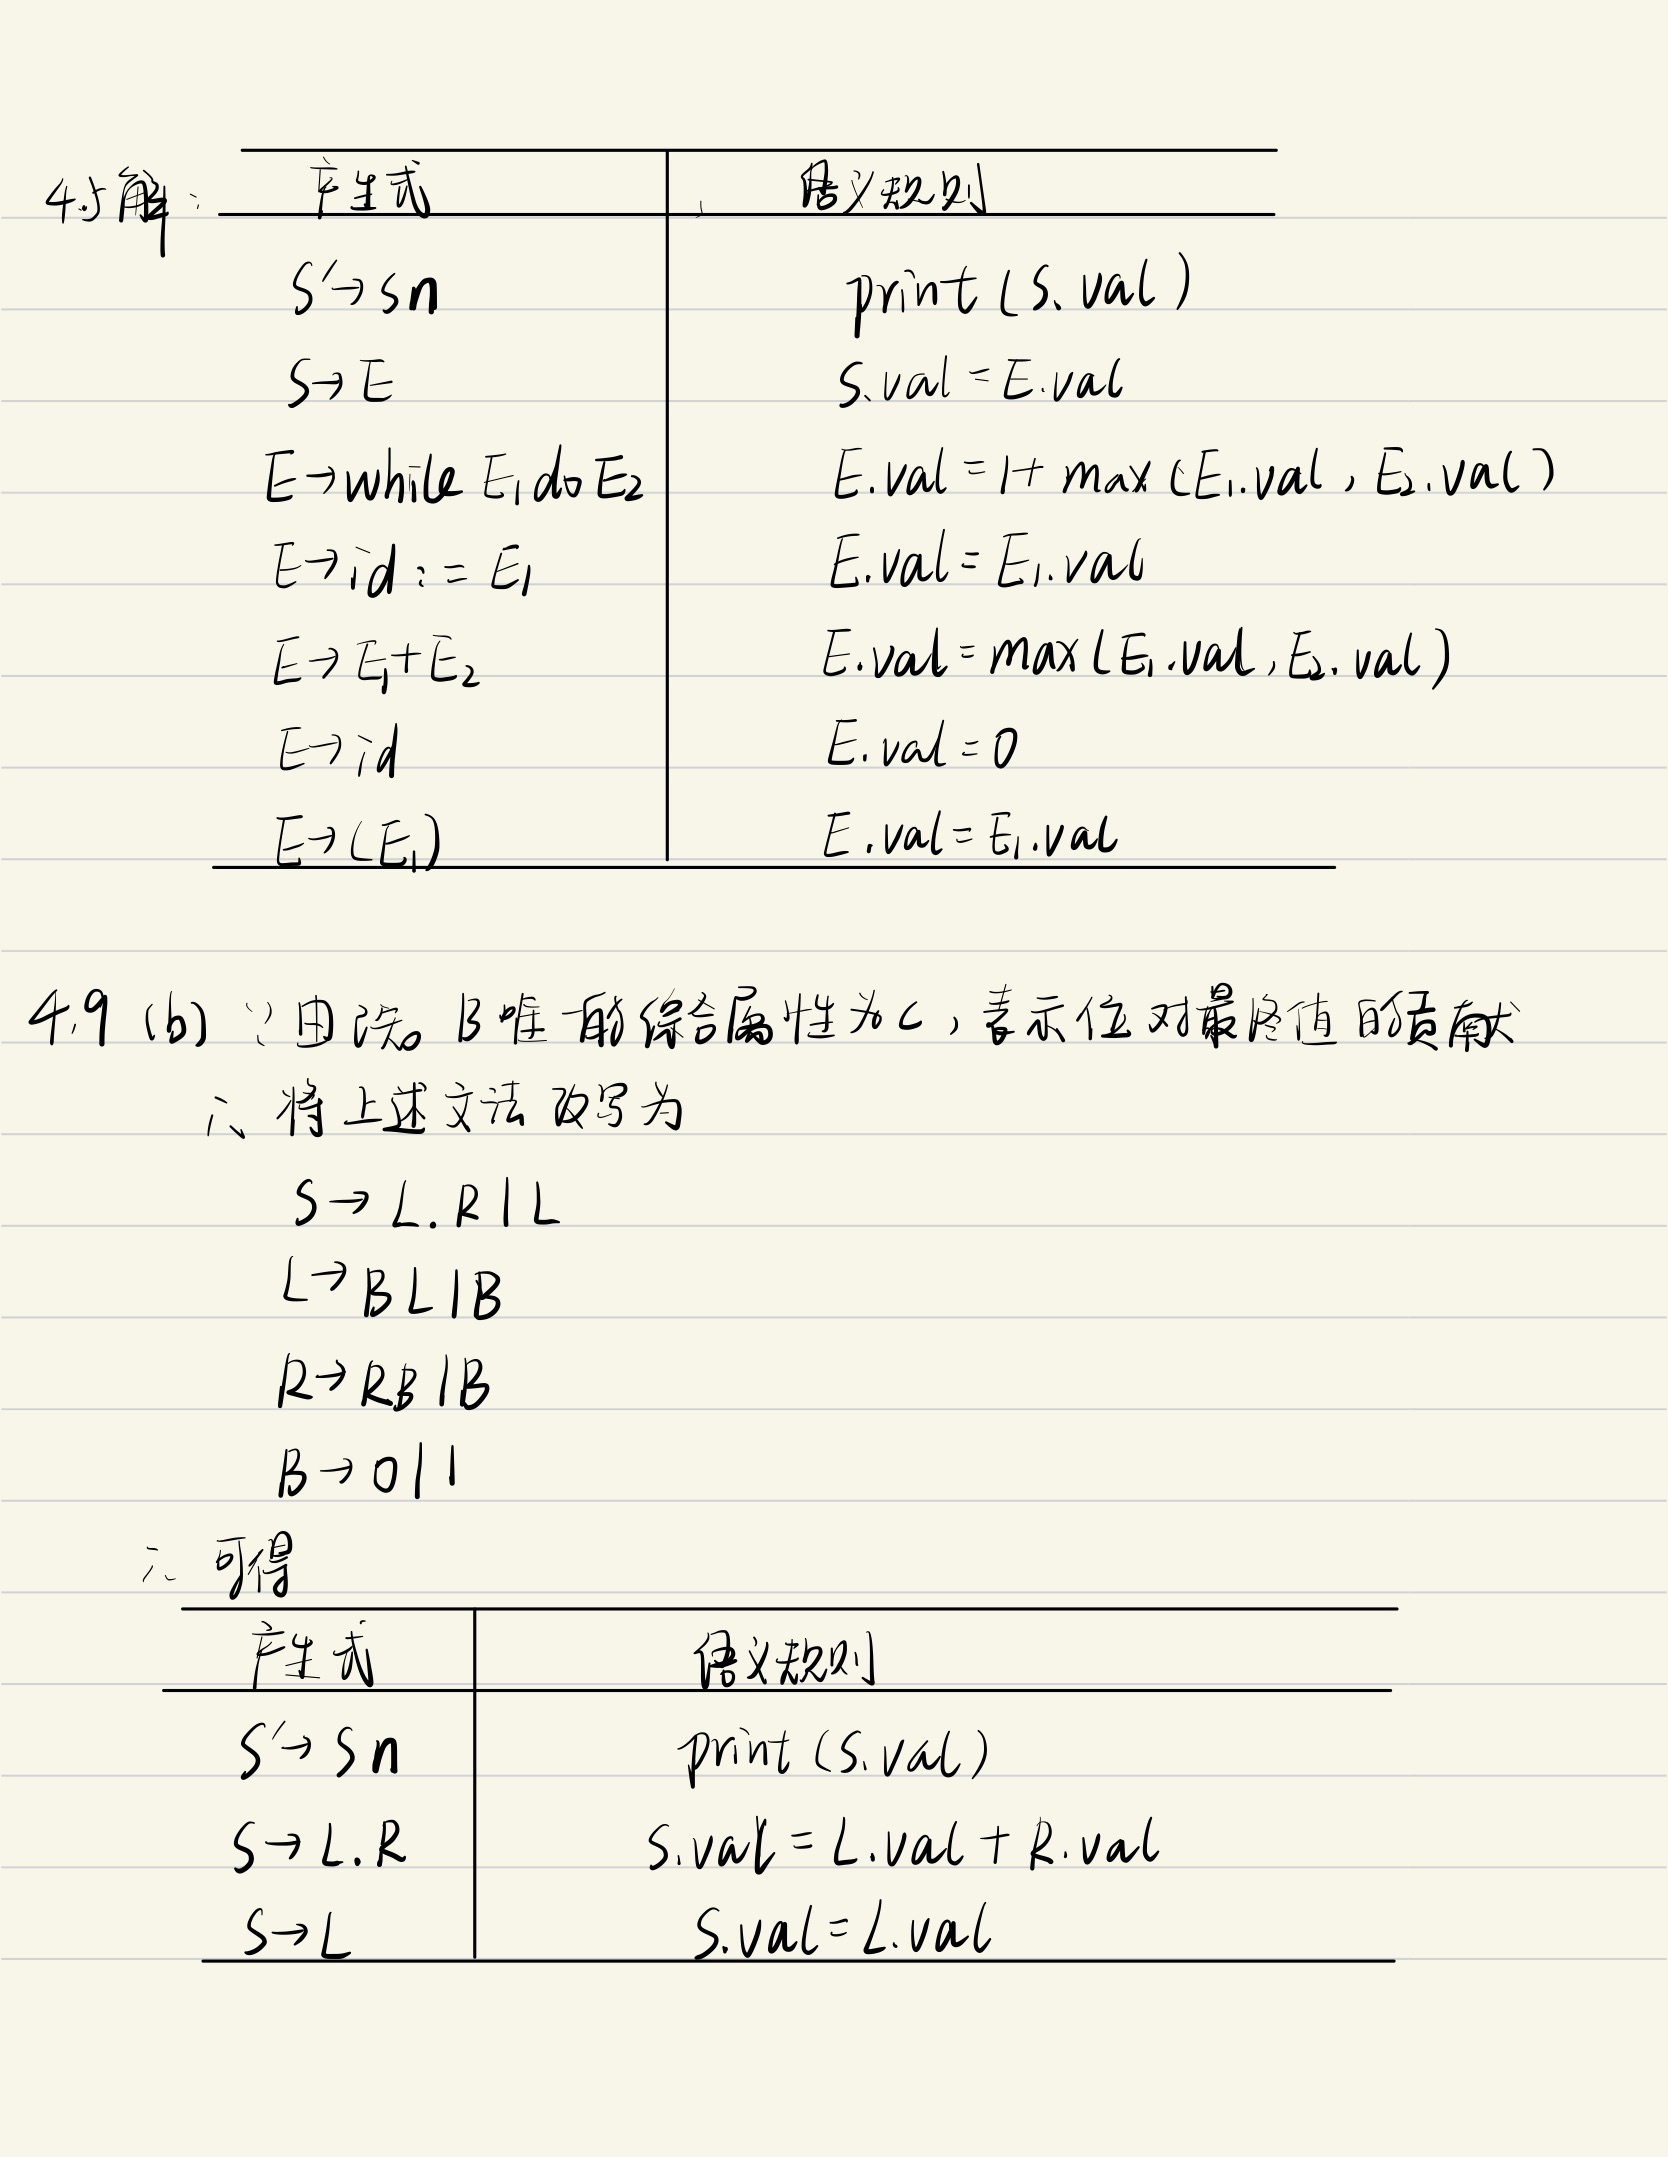 4.5 解: 产生式 语义规则
S'→Sn print(S.val)
S→E S.val=E.val
E→while E₁ do E₂ E.val=1+max(E₁.val,E₂.val)
E→id:=E₁ E.val=E₁.val
E→E₁+E₂ E.val=max(E₁.val,E₂.val)
E→id E.val=0
E→(E₁) E.val=E₁.val
4.9 (b) ∵由 B唯一的综合属性为c,表示位对最终值的贡献
∴ 将上述文法改写为
S→L.R|L
L→BL|B
R→RB|B
B→0|1
∴ 可得
产生式 语义规则
S'→Sn print(S.val)
S→L.R S.val=L.val+R.val
S→L S.val=L.val